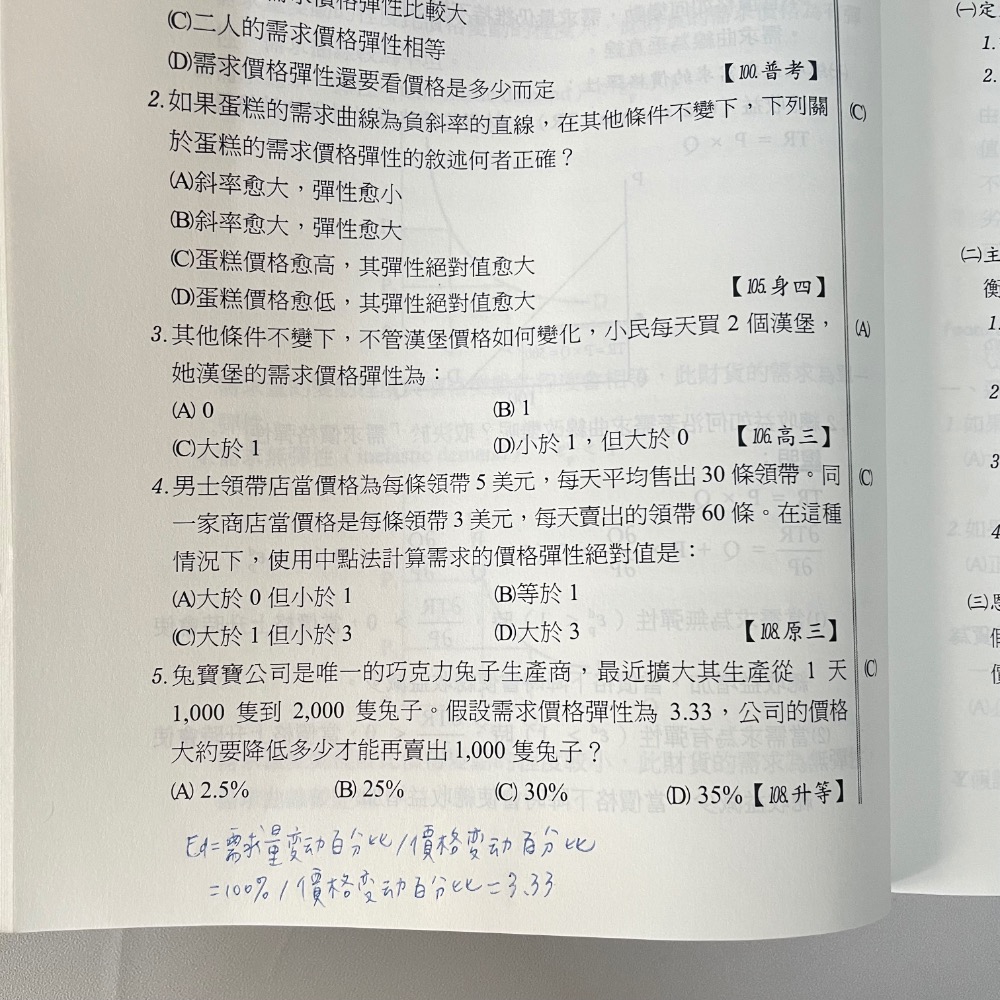 求價格彈性比較大
(C)二人的需求價格彈性相等
(D)需求價格彈性還要看價格是多少而定 【100.普考】
2.如果蛋糕的需求曲線為負斜率的直線，在其他條件不變下，下列關 (C)
於蛋糕的需求價格彈性的敘述何者正確？
(A)斜率愈大，彈性愈小
(B)斜率愈大，彈性愈大
(C)蛋糕價格愈高，其彈性絕對值愈大
(D)蛋糕價格愈低，其彈性絕對值愈大 【105.身四】
3.其他條件不變下，不管漢堡價格如何變化，小民每天買 2 個漢堡， (A)
她漢堡的需求價格彈性為：
(A) 0 (B) 1
(C)大於 1 (D)小於 1，但大於 0 【106.高三】
4.男士領帶店當價格為每條領帶 5 美元，每天平均售出 30 條領帶。同 (C)
一家商店當價格是每條領帶 3 美元，每天賣出的領帶 60 條。在這種
情況下，使用中點法計算需求的價格彈性絕對值是：
(A)大於 0 但小於 1 (B)等於 1
(C)大於 1 但小於 3 (D)大於 3 【108.原三】
5.兔寶寶公司是唯一的巧克力兔子生產商，最近擴大其生產從 1 天 (C)
1,000 隻到 2,000 隻兔子。假設需求價格彈性為 3.33，公司的價格
大約要降低多少才能再賣出 1,000 隻兔子？
(A) 2.5% (B) 25% (C) 30% (D) 35%【108.升等】
Ed=需求量变动百分比/價格变动百分比
=100%/價格变动百分比=3.33
(一)定
1.
2.
(二)主
衡
1.
2
3
4
(三)